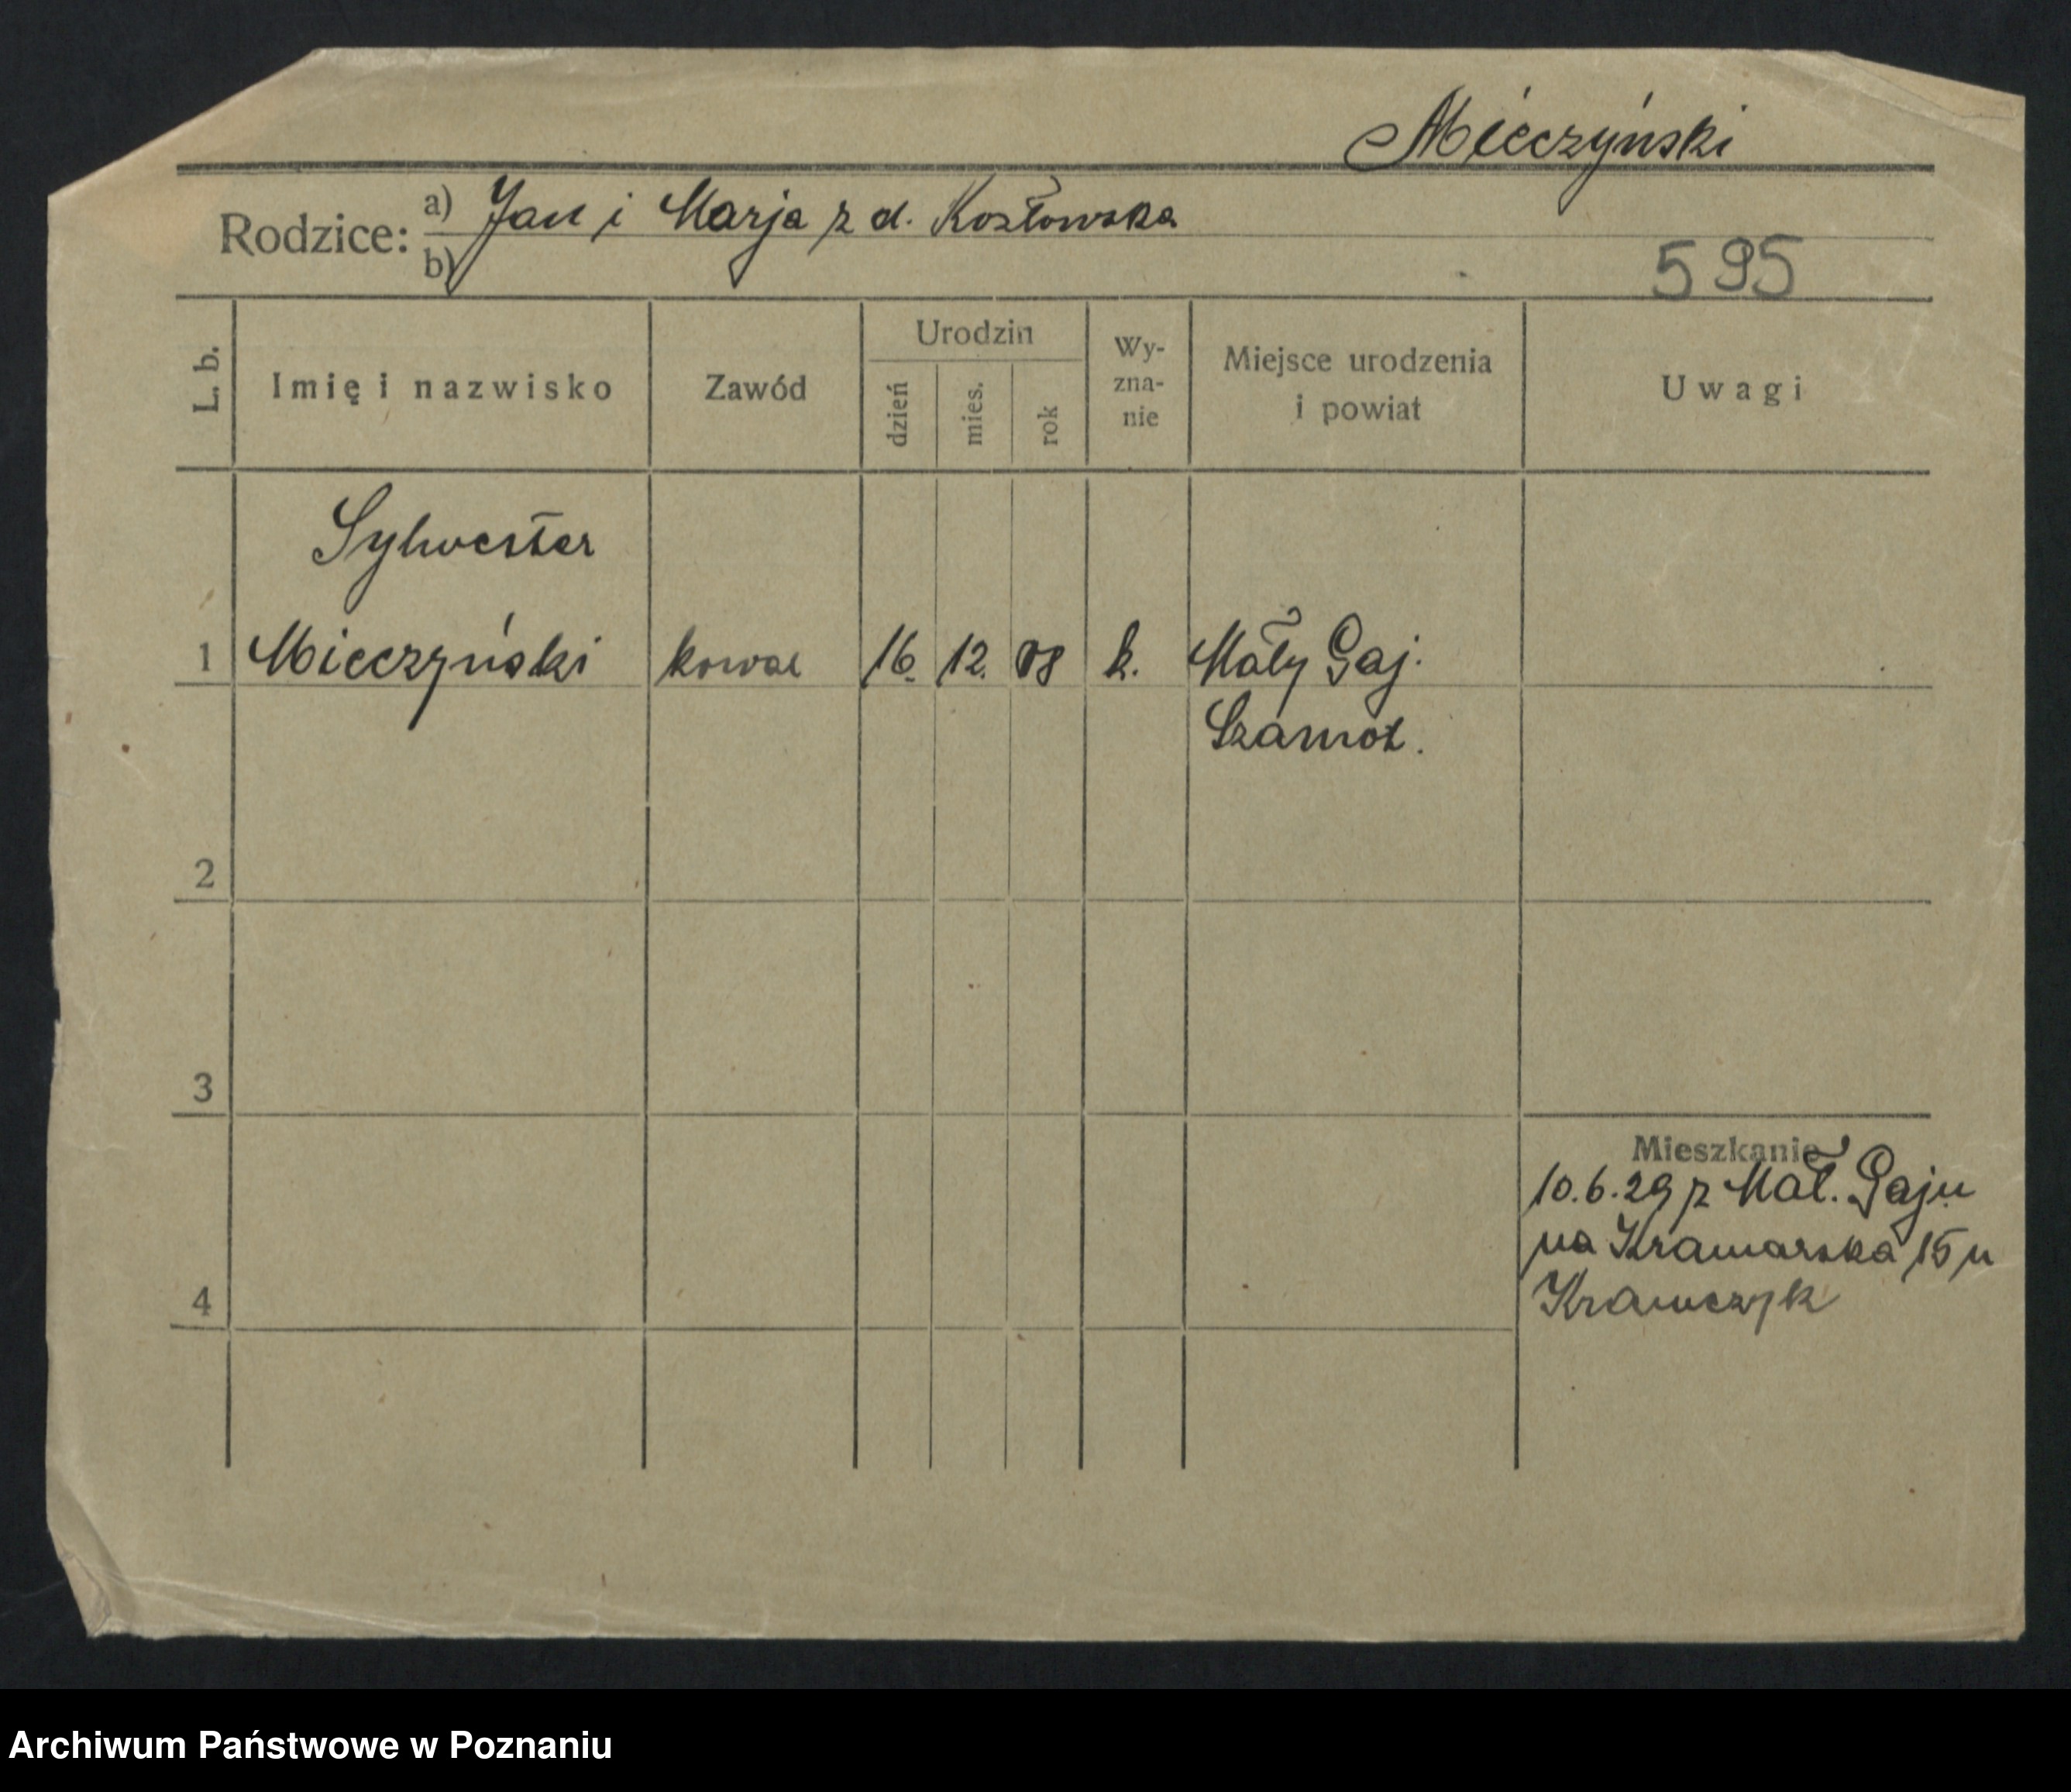 Mieczyński
Rodzice: a) Jan i Marja z d. Kozłowska
b)
595
L. b.
Imię i nazwisko
Zawód
Urodzin
dzień
mies.
rok
Wy-
zna-
nie
Miejsce urodzenia
i powiat
Uwagi
Sylwester
1 Mieczyński kowal 16. 12. 08 k. Mały Gaj.
Szamot.
2
3
Mieszkanie
10.6.29 z Mał. Gaju
na Kramarska 15 u
4 Krawczyk
Archiwum Państwowe w Poznaniu